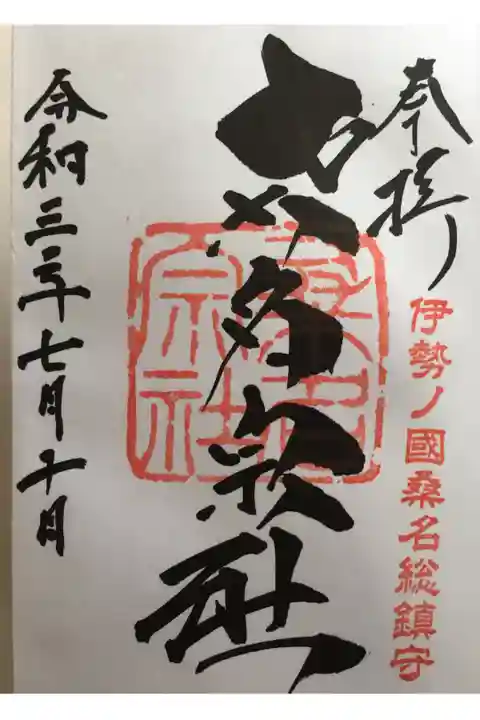 奉拝
伊勢ノ國桑名総鎮守
桑名宗社
桑名宗社
令和三年七月十日